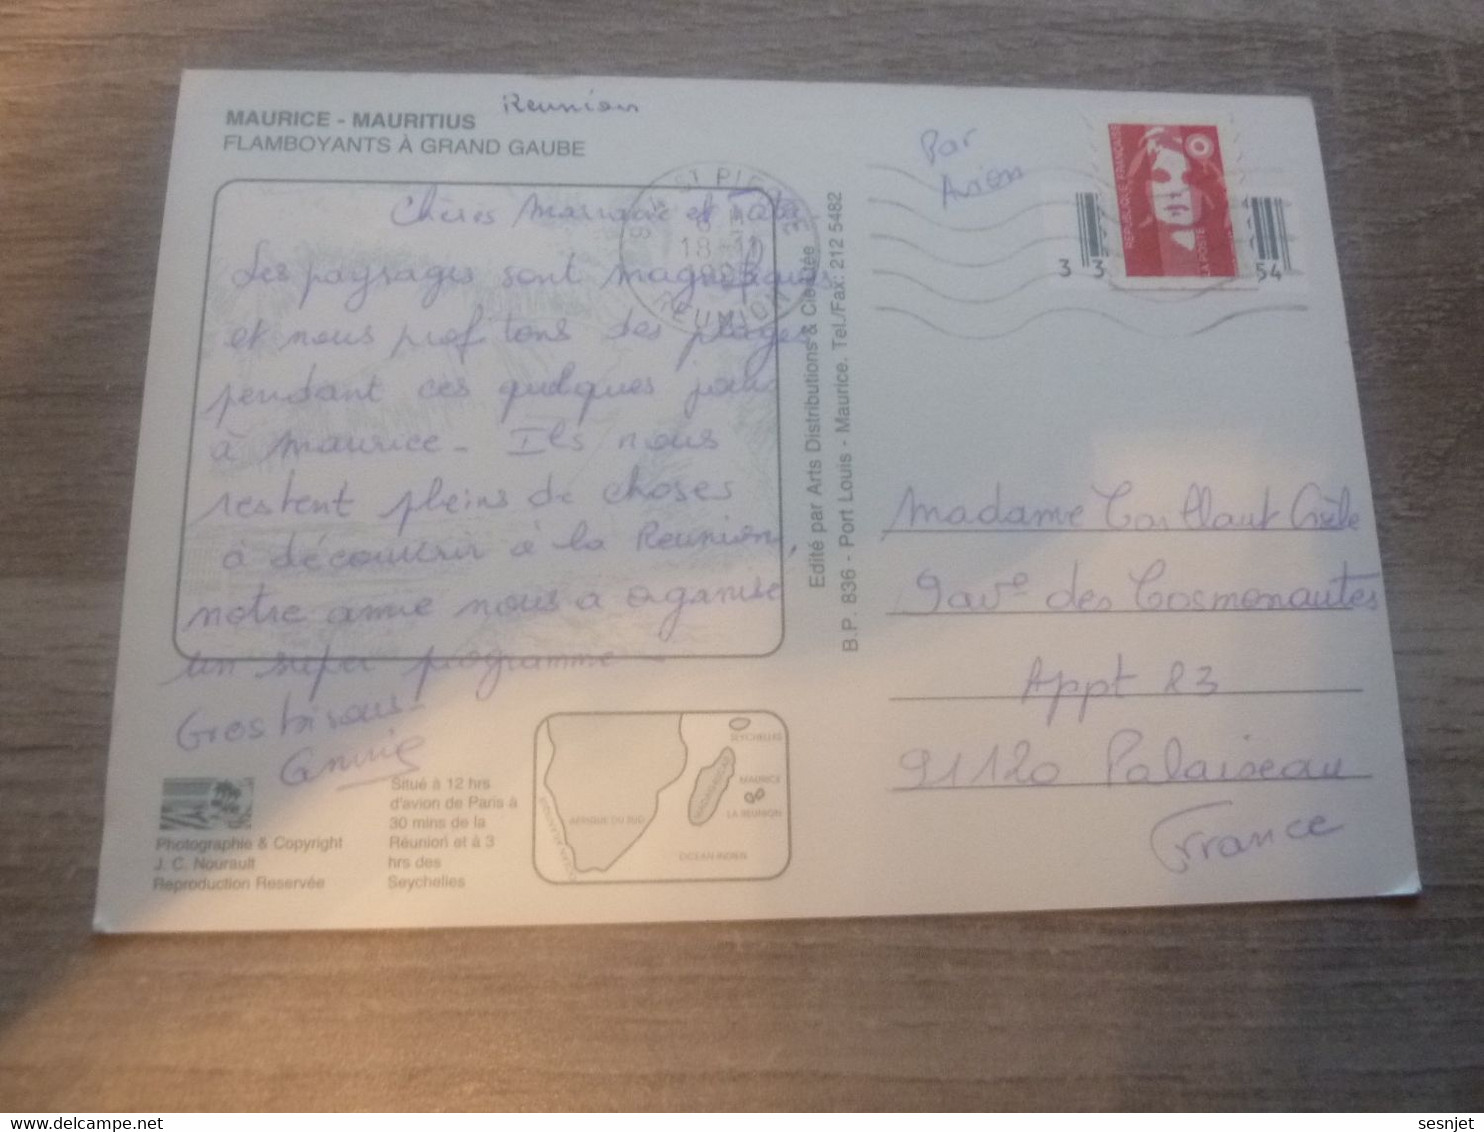 Reunion
MAURICE - MAURITIUS
FLAMBOYANTS À GRAND GAUBE
Chères et Tata
Les paysages sont magnifiques
et nous profitons des plages
pendant ces quelques jours
à Maurice - Ils nous
restent pleins de choses
à découvrir à la Reunion,
notre amie nous a organisé
un super programme -
Gros bisous -
Annie
Photographie & Copyright
J. C. Nourault
Reproduction Reservée
Situé à 12 hrs
d'avion de Paris à
30 mins de la
Réunion et à 3
hrs des
Seychelles
SEYCHELLES
MADAGASCAR
MAURICE
LA REUNION
AFRIQUE DU SUD
OCEAN INDIEN
Edité par Arts Distributions & Cie Ltée
B.P. 836 - Port Louis - Maurice. Tel./Fax: 212 5482
974 ST PIERRE
18
REUNION
Par
Avion
REPUBLIQUE FRANÇAISE
LA POSTE
3 3
54
Madame
9 ave des Cosmonautes
Appt 23
91120 Palaiseau
France
sesnjet